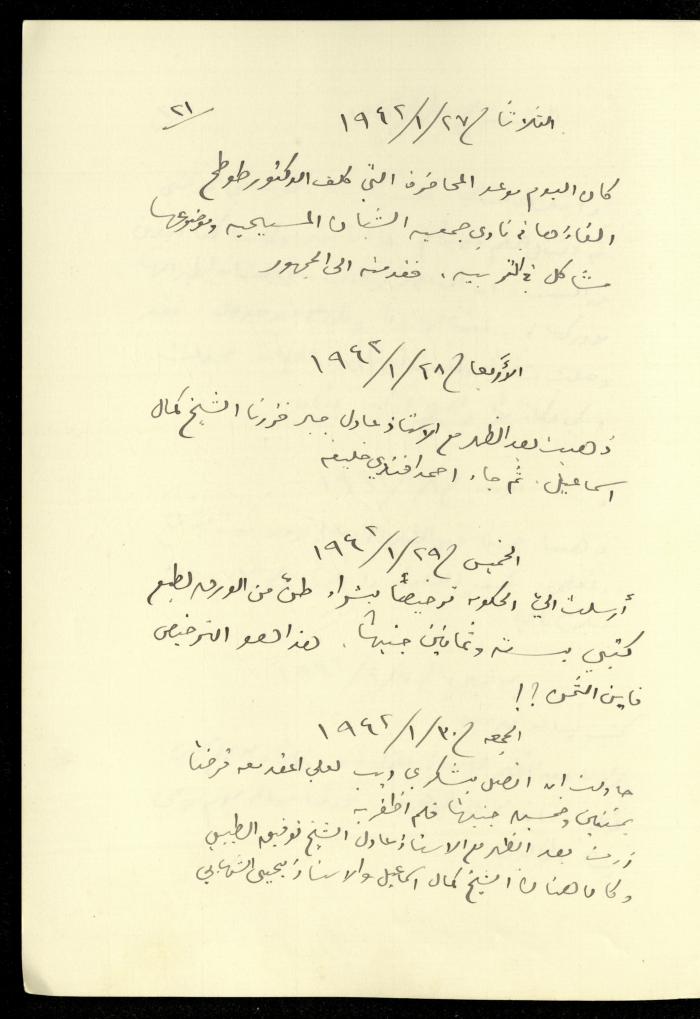 ٢١
الثلاثا ٢٧/١/١٩٤٢
كان اليوم موعد المحاضرة التي كلف الدكتور طوطح
القاءها في نادي جمعية الشبان المسيحيه وموضوعها
مشاكل في التربيه. فقدمته الى الجمهور
الأربعا ٢٨/١/١٩٤٢
ذهبت بعد الظهر مع الاستاذ عادل جبر فزرنا الشيخ كمال
اسماعيل. ثم جاء احمد افندي خليفه
الخميس ٢٩/١/١٩٤٢
أرسلت اليّ الحكومه ترخيصاً بشراء طنّ من الورق لطبع
كتبي بستة وثمانين جنيهاً. هذا هو الترخيص
فاين الثمن؟!
الجمعه ٣٠/١/١٩٤٢
حاولت ان اتصل بشكري ديب لعلي اعقد معه قرضاً
وخمسين جنيهاً فلم اظفر به
زرت بعد الظهر مع الاستاذ عادل الشيخ توفيق الطيبي
وكان هناك الشيخ كمال اسماعيل والاستاذ يحيى الشهابي